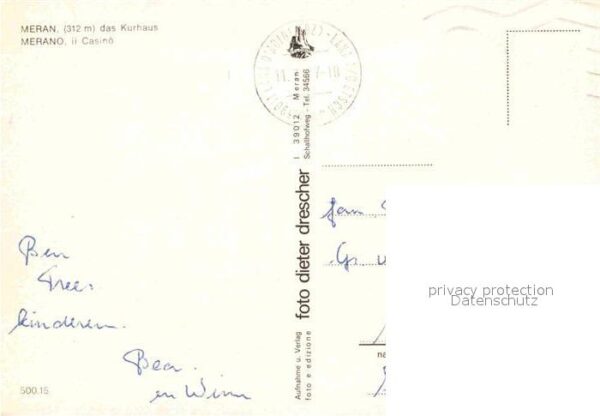 MERAN, (312 m) das Kurhaus
MERANO, il Casinò
Ben
Trees
kinderen.
Bea
en Wim
500.15
Aufnahme u. Verlag
foto e edizione
foto dieter drescher
I 39012 Meran
Schallhofweg - Tel. 34566
fam
privacy protection
Datenschutz